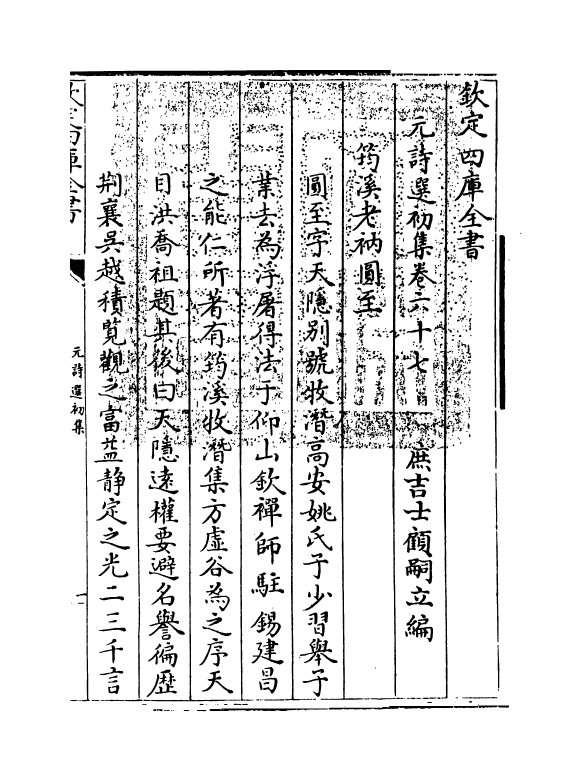 欽定四庫全書
元詩選初集卷六十七
庶吉士顧嗣立編
筠溪老衲圓至
圓至字天隱別號牧潛高安姚氏子少習舉子
業去為浮屠得法于仰山欽禪師駐錫建昌
之能仁所著有筠溪牧潛集方虛谷為之序天
目洪喬祖題其後曰天隱遠權要避名譽徧歷
荆襄吳越積覧觀之富益静定之光二三千言
欽定四庫全書
元詩選初集
一